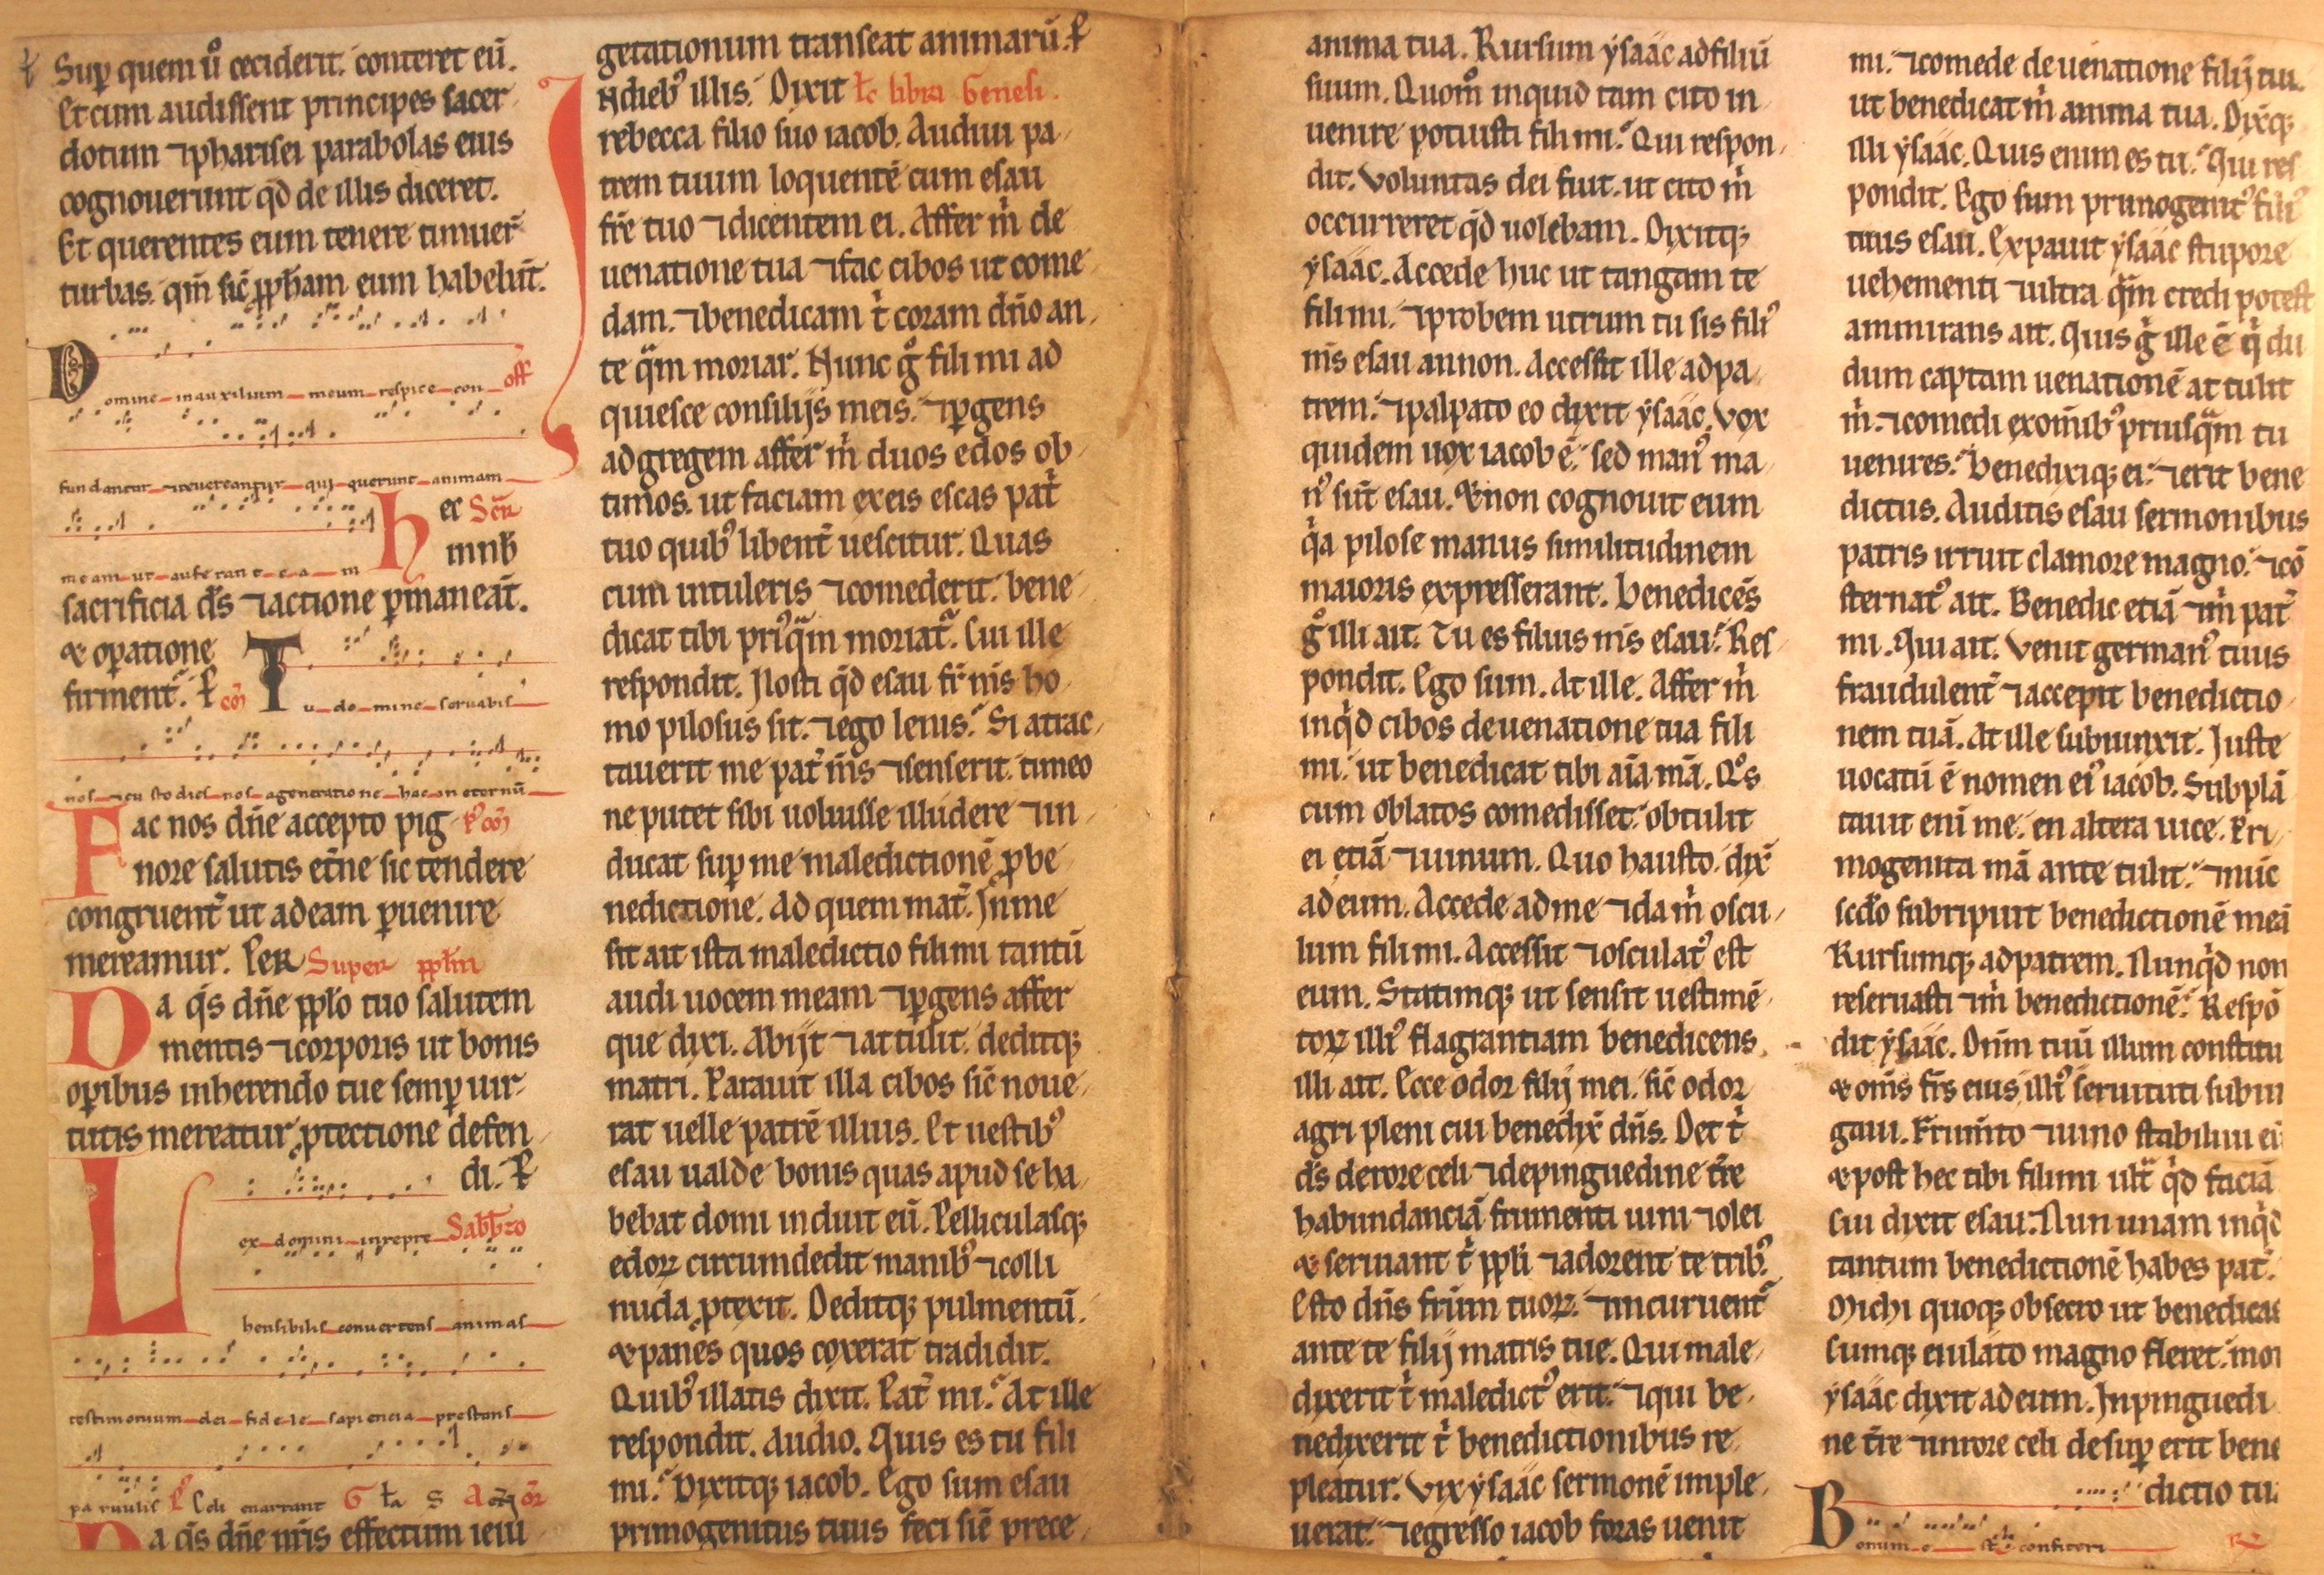 Sup̱ quem u͛o ceciderit. conteret eū.
Et cum audissent principes sacer
dotum ⁊ pharisei parabolas eius
cognouerunt qd̄ de illis diceret.
Et querentes eum tenere timuer̄
turbas. qm̄ sic̄ ꝓph̄am eum habebūt.
Domine in auxilium meum respice con off̄
fundantur ⁊ reuereantur qui querunt animam
meam ut auferant eam
Hec Scr̄
in nb̄
sacrificia ds̄ ⁊ actione ꝑmaneāt.
⁊ oꝑatione
firment᷑. P̄ cō
Tu domine seruabis
nos ⁊ custodies nos a generatione hac in eternū
Fac nos dn̄e accepto pig p͛ cō
nore salutis et̄ne sic tendere
congruent᷑ ut ad eam ꝑuenire
mereamur. PER Super pp̄lm
Da q̄s dn̄e pp̄lo tuo salutem
mentis ⁊ corporis ut bonis
oꝑibus inherendo tue semꝑ uir
tutis mereatur ꝓtectione defen
di. P̄
Lex domini inrepre Sabb̄o
hensibilis conuertens animas
testimonium dei fidele sapiencia prestans
paruulis P͛ Celi enarrant G l̄a S
Da q̄s dn̄e nr̄is effectum ieiu
getationum transeat animarū. P̄
In dieb᷒ illis. Dixit l̄c libri Genesi.
rebecca filio suo iacob. Audiui pa
trem tuum loquentē cum esau
fr̄e tuo ⁊ dicentem ei. Affer m̄ de
uenatione tua ⁊ fac cibos ut come
dam. ⁊ benedicam t̄ coram dn̄o an
te q̄m moriar. Nunc g̊ fili mi ad
quiesce consilijs meis. ⁊ ꝑgens
ad gregem affer m̄ duos edos ob
timos. ut faciam ex eis escas pat̄
tuo quib᷒ libent᷑ uescitur. Quas
cum intuleris ⁊ comederit. bene
dicat tibi pri᷒q̄m moriat᷑. Cui ille
respondit. Nosti qd̄ esau fr̄ nīs ho
mo pilosus sit. ⁊ ego lenis. Si atrac
tauerit me pat᷑ m̄s ⁊ senserit. timeo
ne putet sibi uoluisse illudere ⁊ in
ducat suꝑ me maledictionē ꝓ be
nedictione. Ad quem mat᷑. In me
sit ait ista maledictio fili mi tantū
audi uocem meam ⁊ ꝑgens affer
que dixi. Abijt ⁊ attulit. deditq;
matri. Parauit illa cibos sic̄ noue
rat uelle patrē illius. Et uestib᷒
esau ualde bonis quas apud se ha
bebat domi induit eū. Pelliculasq;
edoꝝ circumdedit manib᷒ ⁊ colli
nuda ꝓtexit. Deditq; pulmentū.
⁊ panes quos coxerat tradidit.
Quib᷒ illatis dixit. Pat᷑ mi. At ille
respondit. Audio. Quis es tu fili
mi. Dixitq; iacob. Ego sum esau
primogenitus tuus feci sic̄ prece
anima tua. Rursum ysaac ad filiū
suum. Quom̊ inquid tam cito in
uenire potuisti fili mi. Qui respon
dit. Voluntas dei fuit. ut cito m̄
occurreret qd̄ uolebam. Dixitq;
ysaac. Accede huc ut tangam te
fili mi. ⁊ probem utrum tu sis fili᷒
m̄s esau an non. Accessit ille ad pa
trem. ⁊ palpato eo dixit ysaac. Vox
quidem uox iacob ē. sed man᷒ ma
n᷒ sūt esau. ⁊ non cognouit eum
q̄a pilose manus similitudinem
maioris expresserant. Benedicēs
g̊ illi ait. Tu es filius m̄s esau. Res
pondit. Ego sum. At ille. Affer m̄
inq̄d cibos de uenatione tua fili
mi. ut benedicat tibi aīa mā. Q̊s
cum oblatos comedisset. obtulit
ei etiā ⁊ uinum. Quo hausto. dix̄
ad eum. Accede ad me ⁊ da m̄ oscu
lum fili mi. Accessit ⁊ osculat᷒ est
eum. Statimq; ut sensit uestimē
toꝝ illi᷒ flagrantiam benedicens
illi ait. Ecce odor filij mei. sic̄ odor
agri pleni cui benedix̄ dn̄s. Det t̄
ds̄ de rore celi ⁊ de pinguedine tr̄e
habundanciā frumenti uini ⁊ olei
⁊ seruiant t̄ pp̄li ⁊ adorent te trib᷒.
Esto dn̄s fr̄um tuoꝝ. ⁊ incuruent᷑
ante te filij matris tue. Qui male
dixerit t̄ maledict᷒ erit. ⁊ qui be
nedixerit t̄ benedictionibus re
pleatur. Vix ysaac sermonē imple
uerat. ⁊ egresso iacob foras uenit
mi. ⁊ comede de uenatione filij tui.
ut benedicat m̄ anima tua. Dix̄q;
illi ysaac. Quis enim es tu. Qui res
pondit. Ego sum primogenit᷒ fili᷒
tuus esau. Expauit ysaac stupore
uehementi ⁊ ultra q̄m credi potest
ammirans ait. Quis g̊ ille ē q̄ du
dum captam uenationē attulit
m̄. ⁊ comedi ex om̄ib᷒ priusq̄m tu
uenires. Benedixiq; ei. ⁊ erit bene
dictus. Auditis esau sermonibus
patris irruit clamore magno. ⁊ cō
sternat᷒ ait. Benedic etiā ⁊ m̄ pat᷑
mi. Qui ait. Venit german᷒ tuus
fraudulent᷑ ⁊ accepit benedictio
nem tuā. At ille subiunxit. Juste
uocatū ē nomen ei᷒ iacob. Subplā
tauit enī me. en altera uice. Pri
mogenita mā ante tulit. ⁊ nūc
scd̄o subripuit benedictionē meā
Rursumq; ad patrem. Nunq̄d non
reseruasti ⁊ m̄ benedictionē. Respō
dit ysaac. Dn̄m tuū illum constitu
⁊ om̄s fr̄s eius illi᷒ seruituti subiu
gaui. Frum̄to ⁊ uino stabiliui eū
⁊ post hec tibi fili mi ult̄ qd̄ faciā
Cui dixit esau. Nun unam inq̄d
tantum benedictionē habes pat᷑.
Michi quoq; obsecro ut benedicas
Cumq; eiulato magno fleret. mot
ysaac dixit ad eum. In pinguedi
ne tr̄e ⁊ in rore celi desuꝑ erit bene
dictio tu
Bonum est confiteri